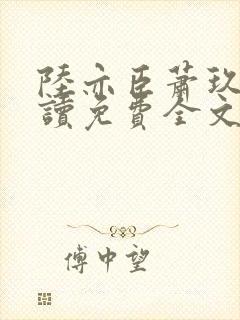 陸亦臣蕭玖
讀免費全文
傅中望